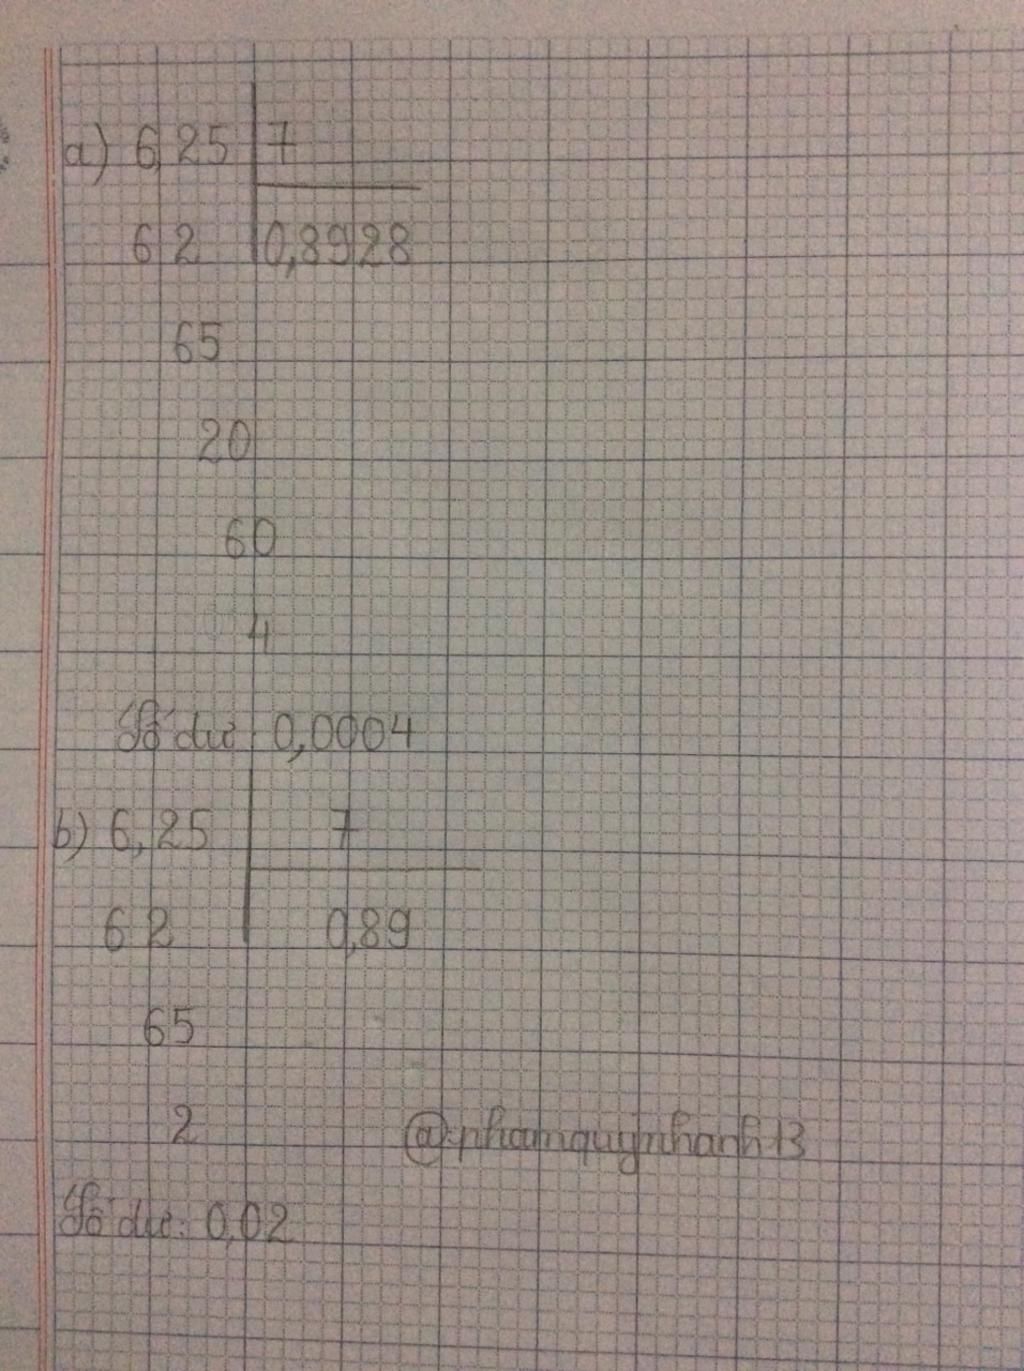 a) 6,25 7
62 0,8928
65
20
60
4
Số dư: 0,0004
b) 6,25 7
62 0,89
65
2
@phamquynhanh13
Số dư: 0,02